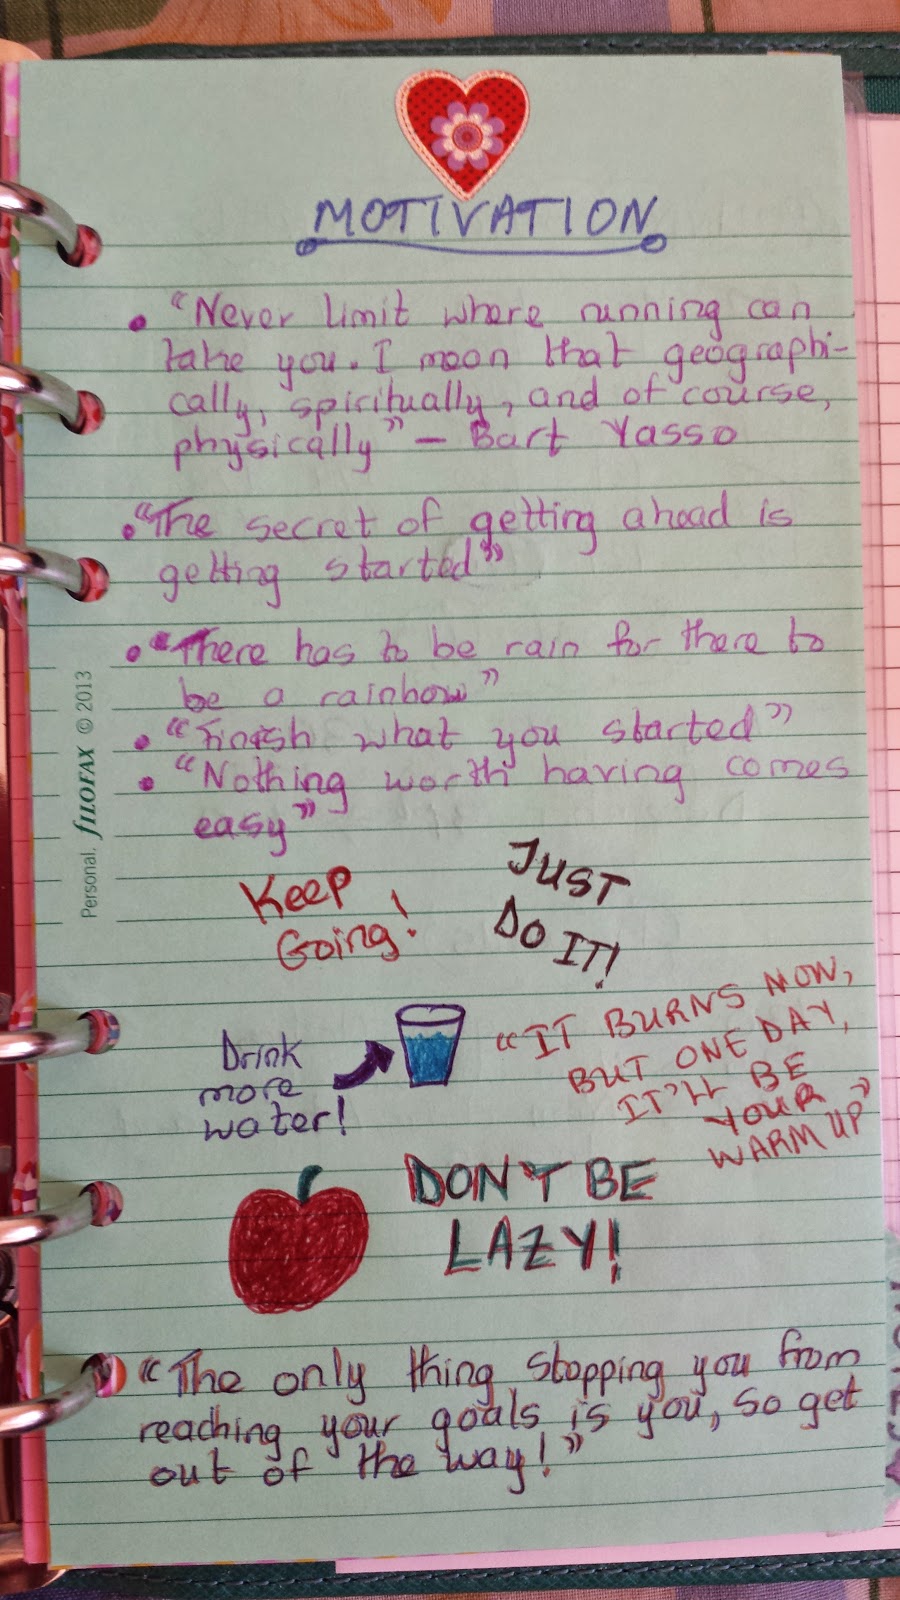 MOTIVATION
• "Never limit where running can
take you. I mean that geographi-
cally, spiritually, and of course,
physically" - Bart Yasso
• "The secret of getting ahead is
getting started"
• "There has to be rain for there to
be a rainbow"
• "Finish what you started"
• "Nothing worth having comes
easy"
Keep
Going!
JUST
DO IT!
Drink
more
water!
"IT BURNS NOW,
BUT ONE DAY,
IT'LL BE
YOUR
WARM UP"
DON'T BE
LAZY!
"The only thing stopping you from
reaching your goals is you, so get
out of the way!"
Personal, fILOFAX © 2013